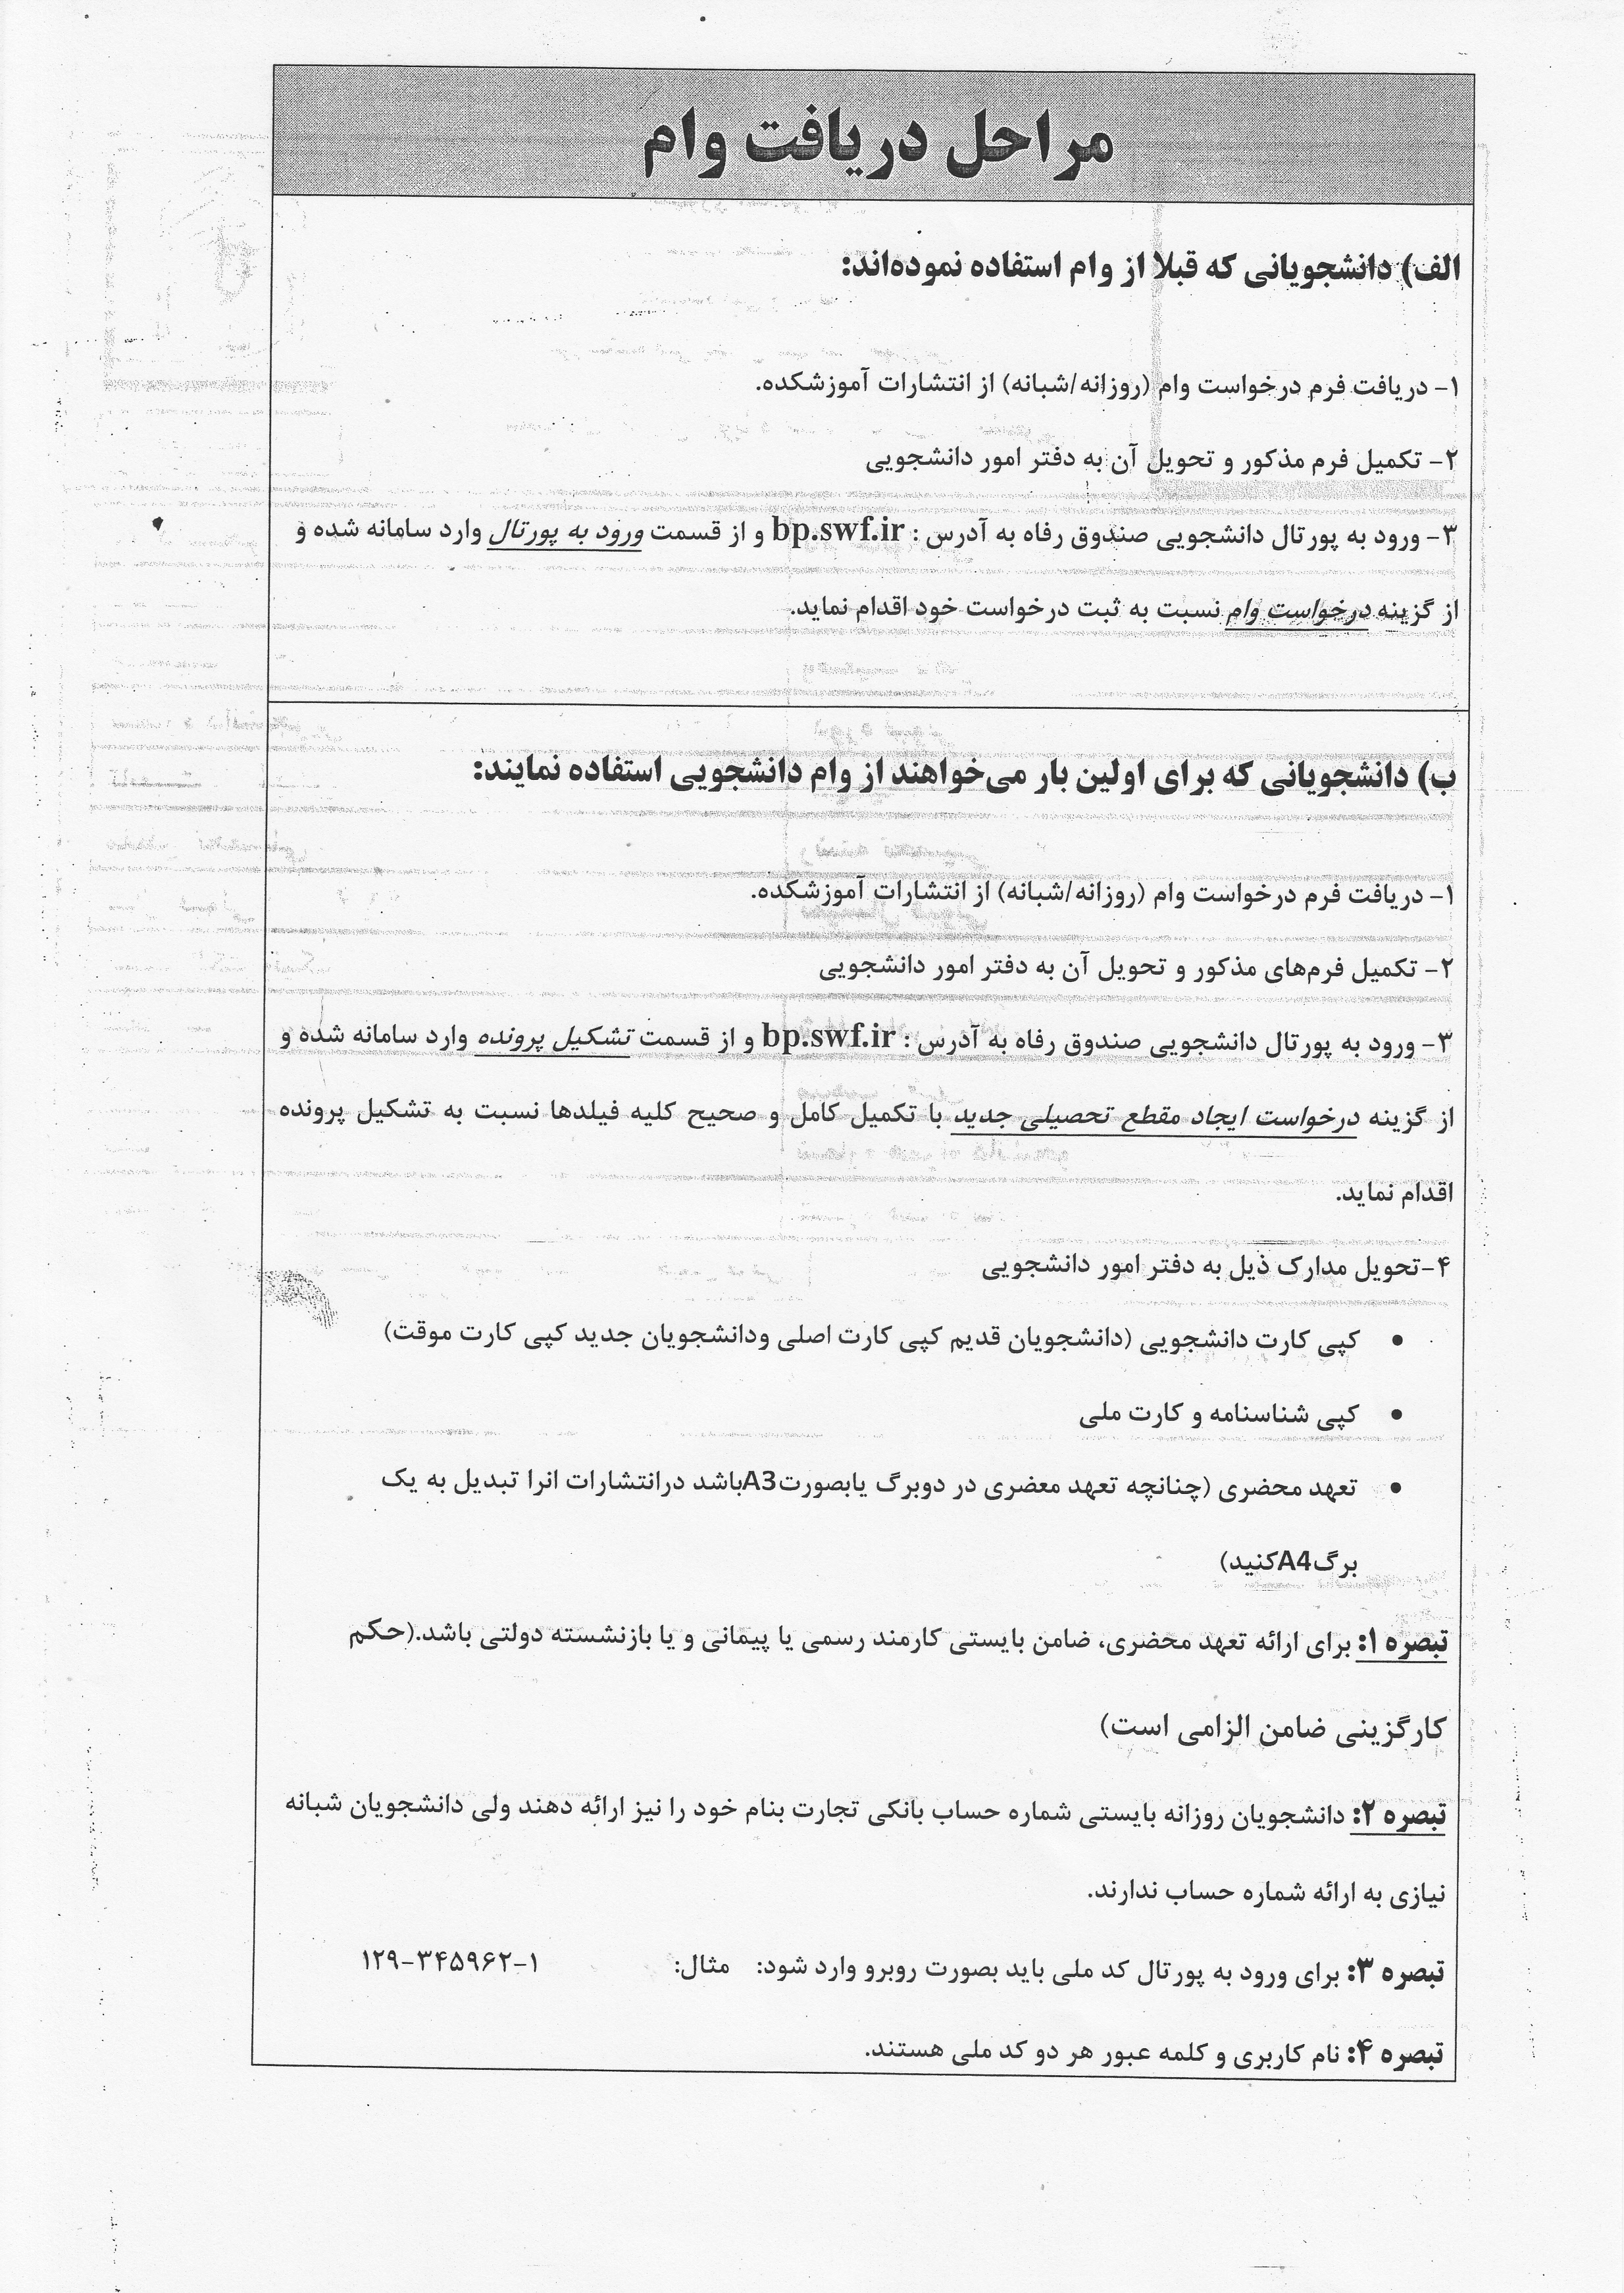 مراحل دریافت وام
الف) دانشجویانی که قبلا از وام استفاده نموده‌اند:
۱- دریافت فرم درخواست وام (روزانه/شبانه) از انتشارات آموزشکده.
۲- تکمیل فرم مذکور و تحویل آن به دفتر امور دانشجویی
۳- ورود به پورتال دانشجویی صندوق رفاه به آدرس : bp.swf.ir و از قسمت ورود به پورتال وارد سامانه شده و
از گزینه درخواست وام نسبت به ثبت درخواست خود اقدام نماید.
ب) دانشجویانی که برای اولین بار می‌خواهند از وام دانشجویی استفاده نمایند:
۱- دریافت فرم درخواست وام (روزانه/شبانه) از انتشارات آموزشکده.
۲- تکمیل فرم‌های مذکور و تحویل آن به دفتر امور دانشجویی
۳- ورود به پورتال دانشجویی صندوق رفاه به آدرس : bp.swf.ir و از قسمت تشکیل پرونده وارد سامانه شده و
از گزینه درخواست ایجاد مقطع تحصیلی جدید با تکمیل کامل و صحیح کلیه فیلدها نسبت به تشکیل پرونده
اقدام نماید.
۴-تحویل مدارک ذیل به دفتر امور دانشجویی
• کپی کارت دانشجویی (دانشجویان قدیم کپی کارت اصلی ودانشجویان جدید کپی کارت موقت)
• کپی شناسنامه و کارت ملی
• تعهد محضری (چنانچه تعهد معضری در دوبرگ یابصورتA3باشد درانتشارات انرا تبدیل به یک
برگA4کنید)
تبصره ۱: برای ارائه تعهد محضری، ضامن بایستی کارمند رسمی یا پیمانی و یا بازنشسته دولتی باشد.(حکم
کارگزینی ضامن الزامی است)
تبصره ۲: دانشجویان روزانه بایستی شماره حساب بانکی تجارت بنام خود را نیز ارائه دهند ولی دانشجویان شبانه
نیازی به ارائه شماره حساب ندارند.
تبصره ۳: برای ورود به پورتال کد ملی باید بصورت روبرو وارد شود: مثال: ۱۲۹-۳۴۵۹۶۲-۱
تبصره ۴: نام کاربری و کلمه عبور هر دو کد ملی هستند.